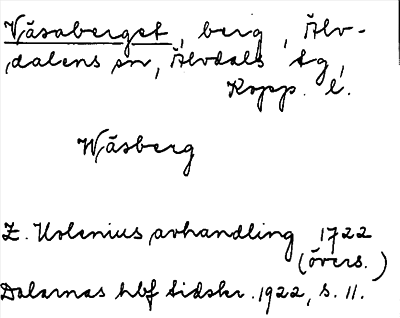 Väsaberget, berg, Älv-
dalens sn, Älvdals tg,
Kopp. l.
Wäsberg
Z. Holenius avhandling 1722
(övers.)
Dalarnas hbf tidskr. 1922, s. 11.